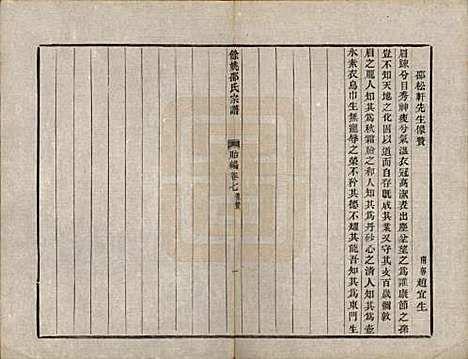 邵松軒先生像贊
南㴑趙宜生
眉疎兮目秀神瘦兮氣溫衣冠高潔表出塵坌望之爲誰康節之孫
豈不知天地之化固以道而自存旣成其業又守其支百歲彌敦
眉之龎人知其爲秋霜臉之和人知其爲丹砂心之清人知其爲壺
氷素衣烏巾生無寵辱之榮不矜其德不耀其能吾知其爲東門生
餘姚邵氏宗譜
貽編卷七
像贊
一